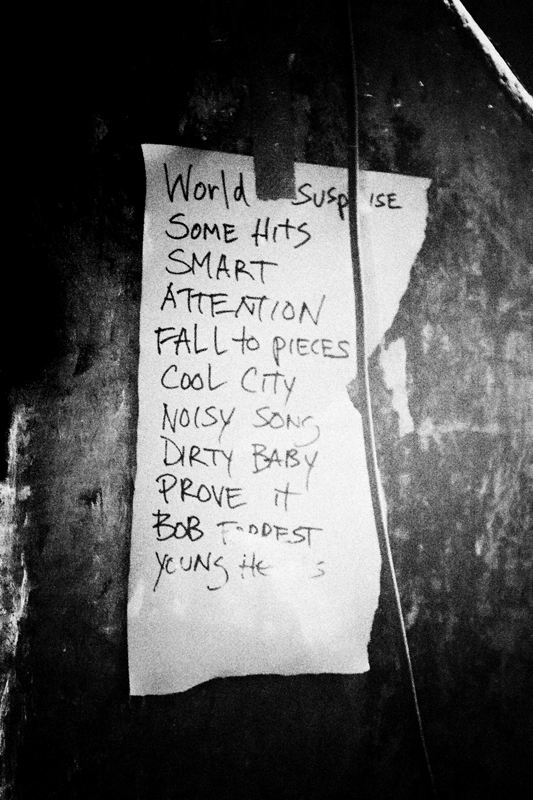 World
SOME HITS
SMART
ATTENTION
FALL to PIECES
COOL CITY
NOISY SONG
DIRTY BABY
PROVE it
BOB
YOUNG